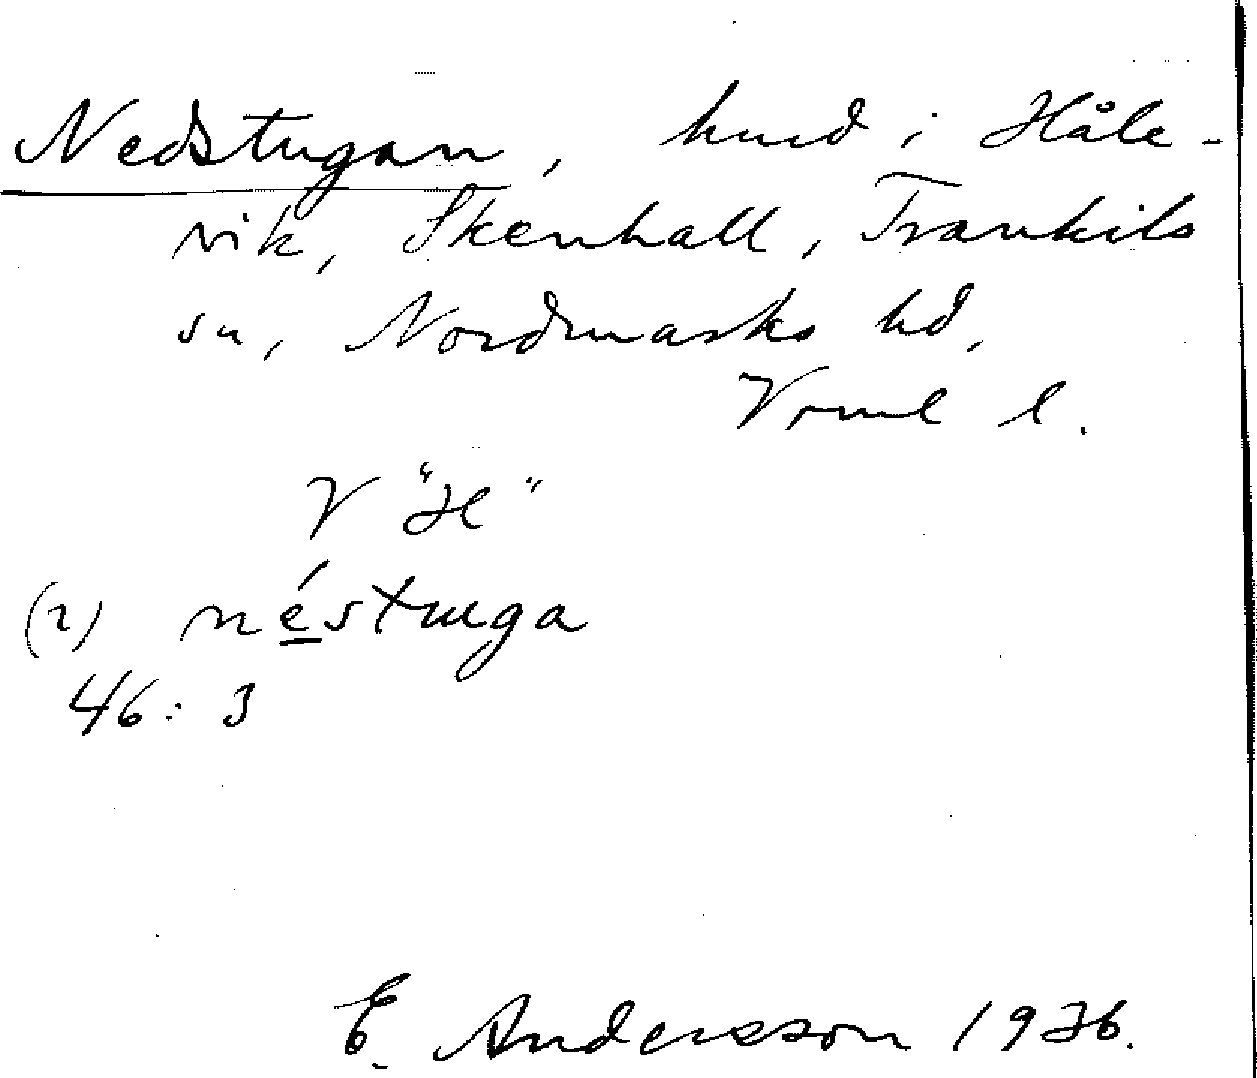 Nedstugan, hmd i Håle-
vik, Skenhall, Trankils
sn, Nordmarks hd,
Vrml l.
V "H"
(2) néstuga
46:3
E. Andersson 1936.